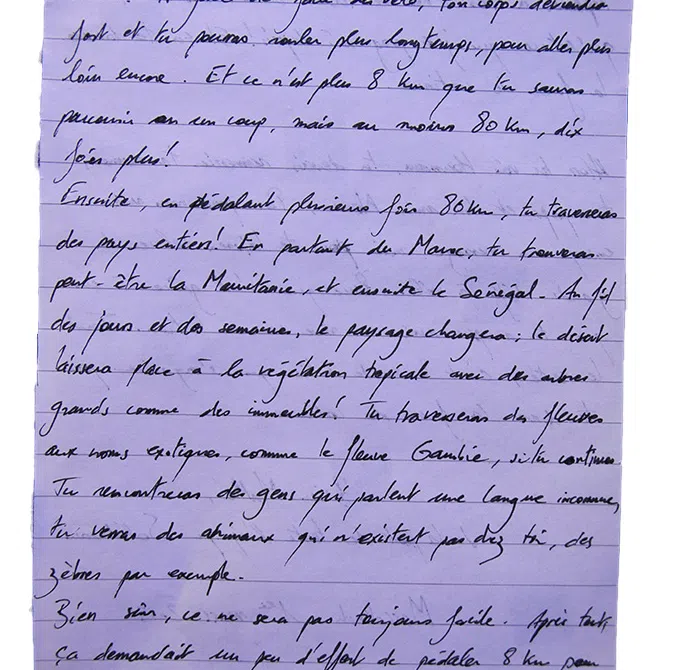 ton corps deviendra
fort et tu pourras rouler plus longtemps, pour aller plus
loin encore. Et ce n'est plus 8 km que tu sauras
parcourir en un coup, mais au moins 80 km, dix
fois plus!
Ensuite, en pédalant plusieurs fois 80 km, tu traverseras
des pays entiers! En partant du Maroc, tu trouveras
peut-être la Mauritanie, et ensuite le Sénégal. Au fil
des jours et des semaines, le paysage changera; le désert
laissera place à la végétation tropicale avec des arbres
grands comme des immeubles! Tu traverseras des fleuves
aux noms exotiques, comme le fleuve Gambie, si tu continues
Tu rencontreras des gens qui parlent une langue inconnue,
tu verras des animaux qui n'existent pas chez toi, des
zèbres par exemple.
Bien sûr, ce ne sera pas toujours facile. Après tout,
ça demandait un peu d'effort de pédaler 8 km pour